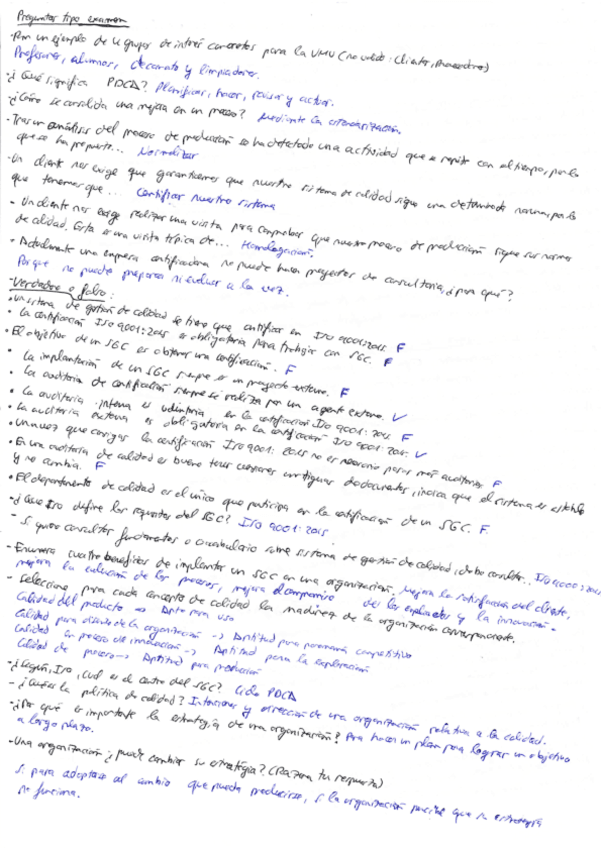 Preguntas tipo examen
· Pon un ejemplo de 4 grupos de interés concretos para la UMU (no válido: Clientes, proveedores)
Profesores, alumnos, decanato y limpiadores.
· ¿Qué significa PDCA? Planificar, hacer, pausar y actuar.
· ¿Cómo se consolida una mejora en un proceso? Mediante la estandarización.
· Tras un análisis del proceso de producción se ha detectado una actividad que se repite con el tiempo, por lo
que se ha propuesto... Normalizar
· Un cliente nos exige que garanticemos que nuestro sistema de calidad sigue una determinada norma, por lo
que tenemos que... Certificar nuestro sistema
- Un cliente nos exige realizar una visita para comprobar que nuestro proceso de producción sigue sus normas
de calidad. Esta es una visita típica de... Homologación.
· Actualmente una empresa certificadora no puede hacer proyectos de consultoría, ¿por qué?
Porque no puede preparar ni evaluar a la vez.
- Verdadero o falso:
· Un sistema de gestión de calidad se tiene que certificar en ISO 9001:2015 F
· La certificación ISO 9001:2015 es obligatoria para trabajar con SGC. F
· El objetivo de un SGC es obtener una certificación. F
· La implantación de un SGC siempre es un proyecto externo. F
· La auditoría de certificación siempre se realiza por un agente externo. V
· La auditoría interna es voluntaria en la certificación ISO 9001:2015 F
· La auditoría externa es obligatoria en la certificación ISO 9001:2015. V
· Una vez que consigas la certificación ISO 9001:2015 no es necesario pasar más auditorías F
· En una auditoría de calidad es bueno tener versiones antiguas de documentos, indica que el sistema es estable
y no cambia. F
· El departamento de calidad es el único que participa en la certificación de un SGC. F.
- ¿Que ISO define los requisitos del SGC? ISO 9001:2015
- Si quiero consultar fundamentos o vocabulario sobre sistema de gestión de calidad, debo consultar.. ISO 9000:2015
- Enumera cuatro beneficios de implantar un SGC en una organización. Mejora la satisfacción del cliente,
mejora la de los procesos, mejora el compromiso de los empleados y la innovación.
- Selecciona para cada concepto de calidad la madurez de la organización correspondiente.
Calidad del producto => Apto para uso
Calidad para diseño de la organización -> Aptitud para panorama competitivo
Calidad en proceso de innovación -> Aptitud para la exploración
Calidad de proceso -> Aptitud para producción
- ¿Según ISO, cuál es el centro del SGC? Ciclo PDCA
- ¿Cuál es la política de calidad? Intenciones y dirección de una organización relativa a la calidad.
- ¿Por qué es importante la estrategia de una organización? Para hacer un plan para lograr un objetivo
a largo plazo.
- Una organización ¿puede cambiar su estrategia? (Razona tu respuesta)
Si para adaptarse al cambio que pueda producirse, si la organización percibe que su estrategia
no funciona.